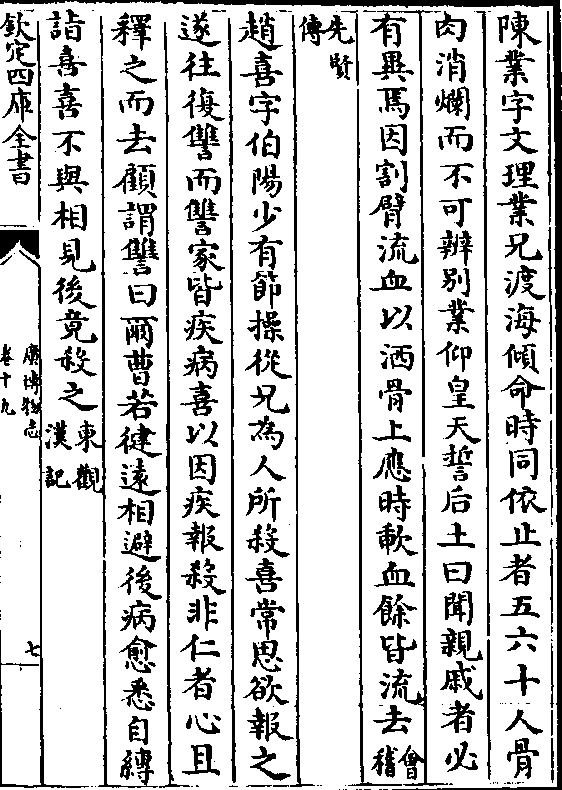 陳業字文理業兄渡海傾命時同依止者五六十人骨
肉消爛而不可辨别業仰皇天誓后土曰聞親戚者必
有異焉因割臂流血以洒骨上應時歃血餘皆流去會稽
先賢傳
趙喜字伯陽少有節操從兄為人所殺喜常思欲報之
遂往復讐而讐家皆疾病喜以因疾報殺非仁者心且
釋之而去顧謂讐曰爾曹若健遠相避後病愈悉自縛
詣喜喜不與相見後竟殺之東觀漢記
欽定四庫全書
廣博物志
卷十九
七